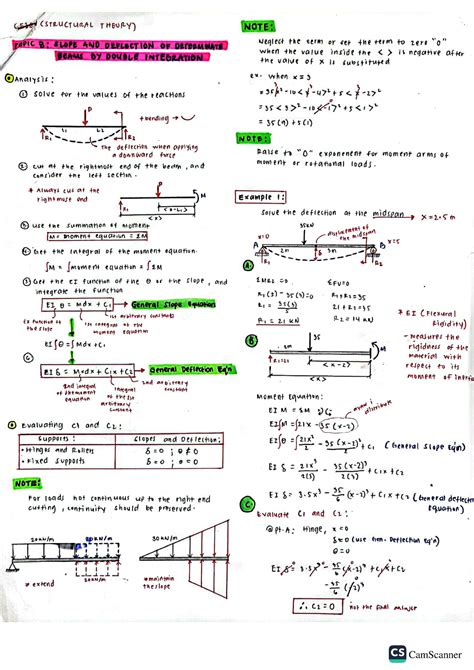 (STRUCTURAL THEORY)
TOPIC 8: SLOPE AND DEFLECTION OF DETERMINATE
BEAMS BY DOUBLE INTEGRATION
Analysis:
① Solve for the values of the reactions
P
+bending
L1 L2
R1
R2
The deflection when applying
a downward force
② Cut at the rightmost end of the beam, and
consider the left section.
* Always cut at the
rightmost end
P
M
R1
<x-L1>
<x>
③ Use the summation of moment
M = Moment equation = ΣM
④ Get the integral of the moment equation.
∫M = ∫moment equation = ∫ΣM
⑤ Get the EI function of the θ or the slope, and
integrate the function
EI θ = Mdx + C1 → General Slope Equation
EI function of
the slope
1st integral of
the moment
1st arbitrary constants
EI ∫θ = ∫Mdx + C1
⑥
EI δ = Mdx + C1x + C2 → General Deflection Eq'n
2nd integral
of the moment
equation
integral
of the 1st
arbitrary
constant
2nd arbitrary
constant
Evaluating C1 and C2:
Supports: Slopes and Deflection:
• Hinges and Rollers δ = 0 ; θ ≠ 0
• Fixed Supports δ = 0 ; θ = 0
NOTE:
For loads not continuous up to the right end
cutting, continuity should be preserved.
20kN/m 20kN/m
* extend
30kN/m
* maintain
the slope
NOTE:
Neglect the term or set the term to zero "0"
when the value inside the < > is negative after
the value of x is substituted
ex. when x = 3
= 35<x>² - 10<x - 4>² + 5<x - 2>²
= 35<3>² - 10<-1>² + 5<1>²
= 35(9) + 5(1)
NOTE:
Raise to "0" exponent for moment arms of
moment or rotational loads.
Example 1:
Solve the deflection at the midspan → x = 2.5 m
35KN
displacement of
the midspan
x=0
A
2m
δ
3m
B
x=5
R1
R2
A.
ΣMR2 = 0.
R1(5) - 35(3) = 0
R1 = 35(3)
5
R1 = 21 KN
ΣFv = 0
R1 + R2 = 35
21 + R2 = 35
R2 = 14 KN
* EI (Flexural
Rigidity)
- measures the
rigidness of the
material with
respect to its
moment of inertia
B
35
M
R1=21
<x-2>
<x>
Moment Equation:
EI M = ΣM
EI∫M = ∫21x - 35<x-2>
EI∫θ = ∫21x²/2 - 35<x-2>²/2 + C1 (General Slope Eq'n)
EI δ = 21x³/2(3) - 35<x-2>³/2(3) + C1x + C2
EI δ = 3.5x³ - 35/6 <x-2>³ + C1x + C2 (General deflection
Equation)
C.
Evaluate C1 and C2:
@pt. A: Hinge, x = 0
δ = 0 (use Gen. Deflection Eq'n)
θ = 0
EI δ = 3.5x³ - 35/6 <x-2>³ + C1x + C2
- 35/6 <-2>³
∴ C2 = 0 not the final answer
CS CamScanner